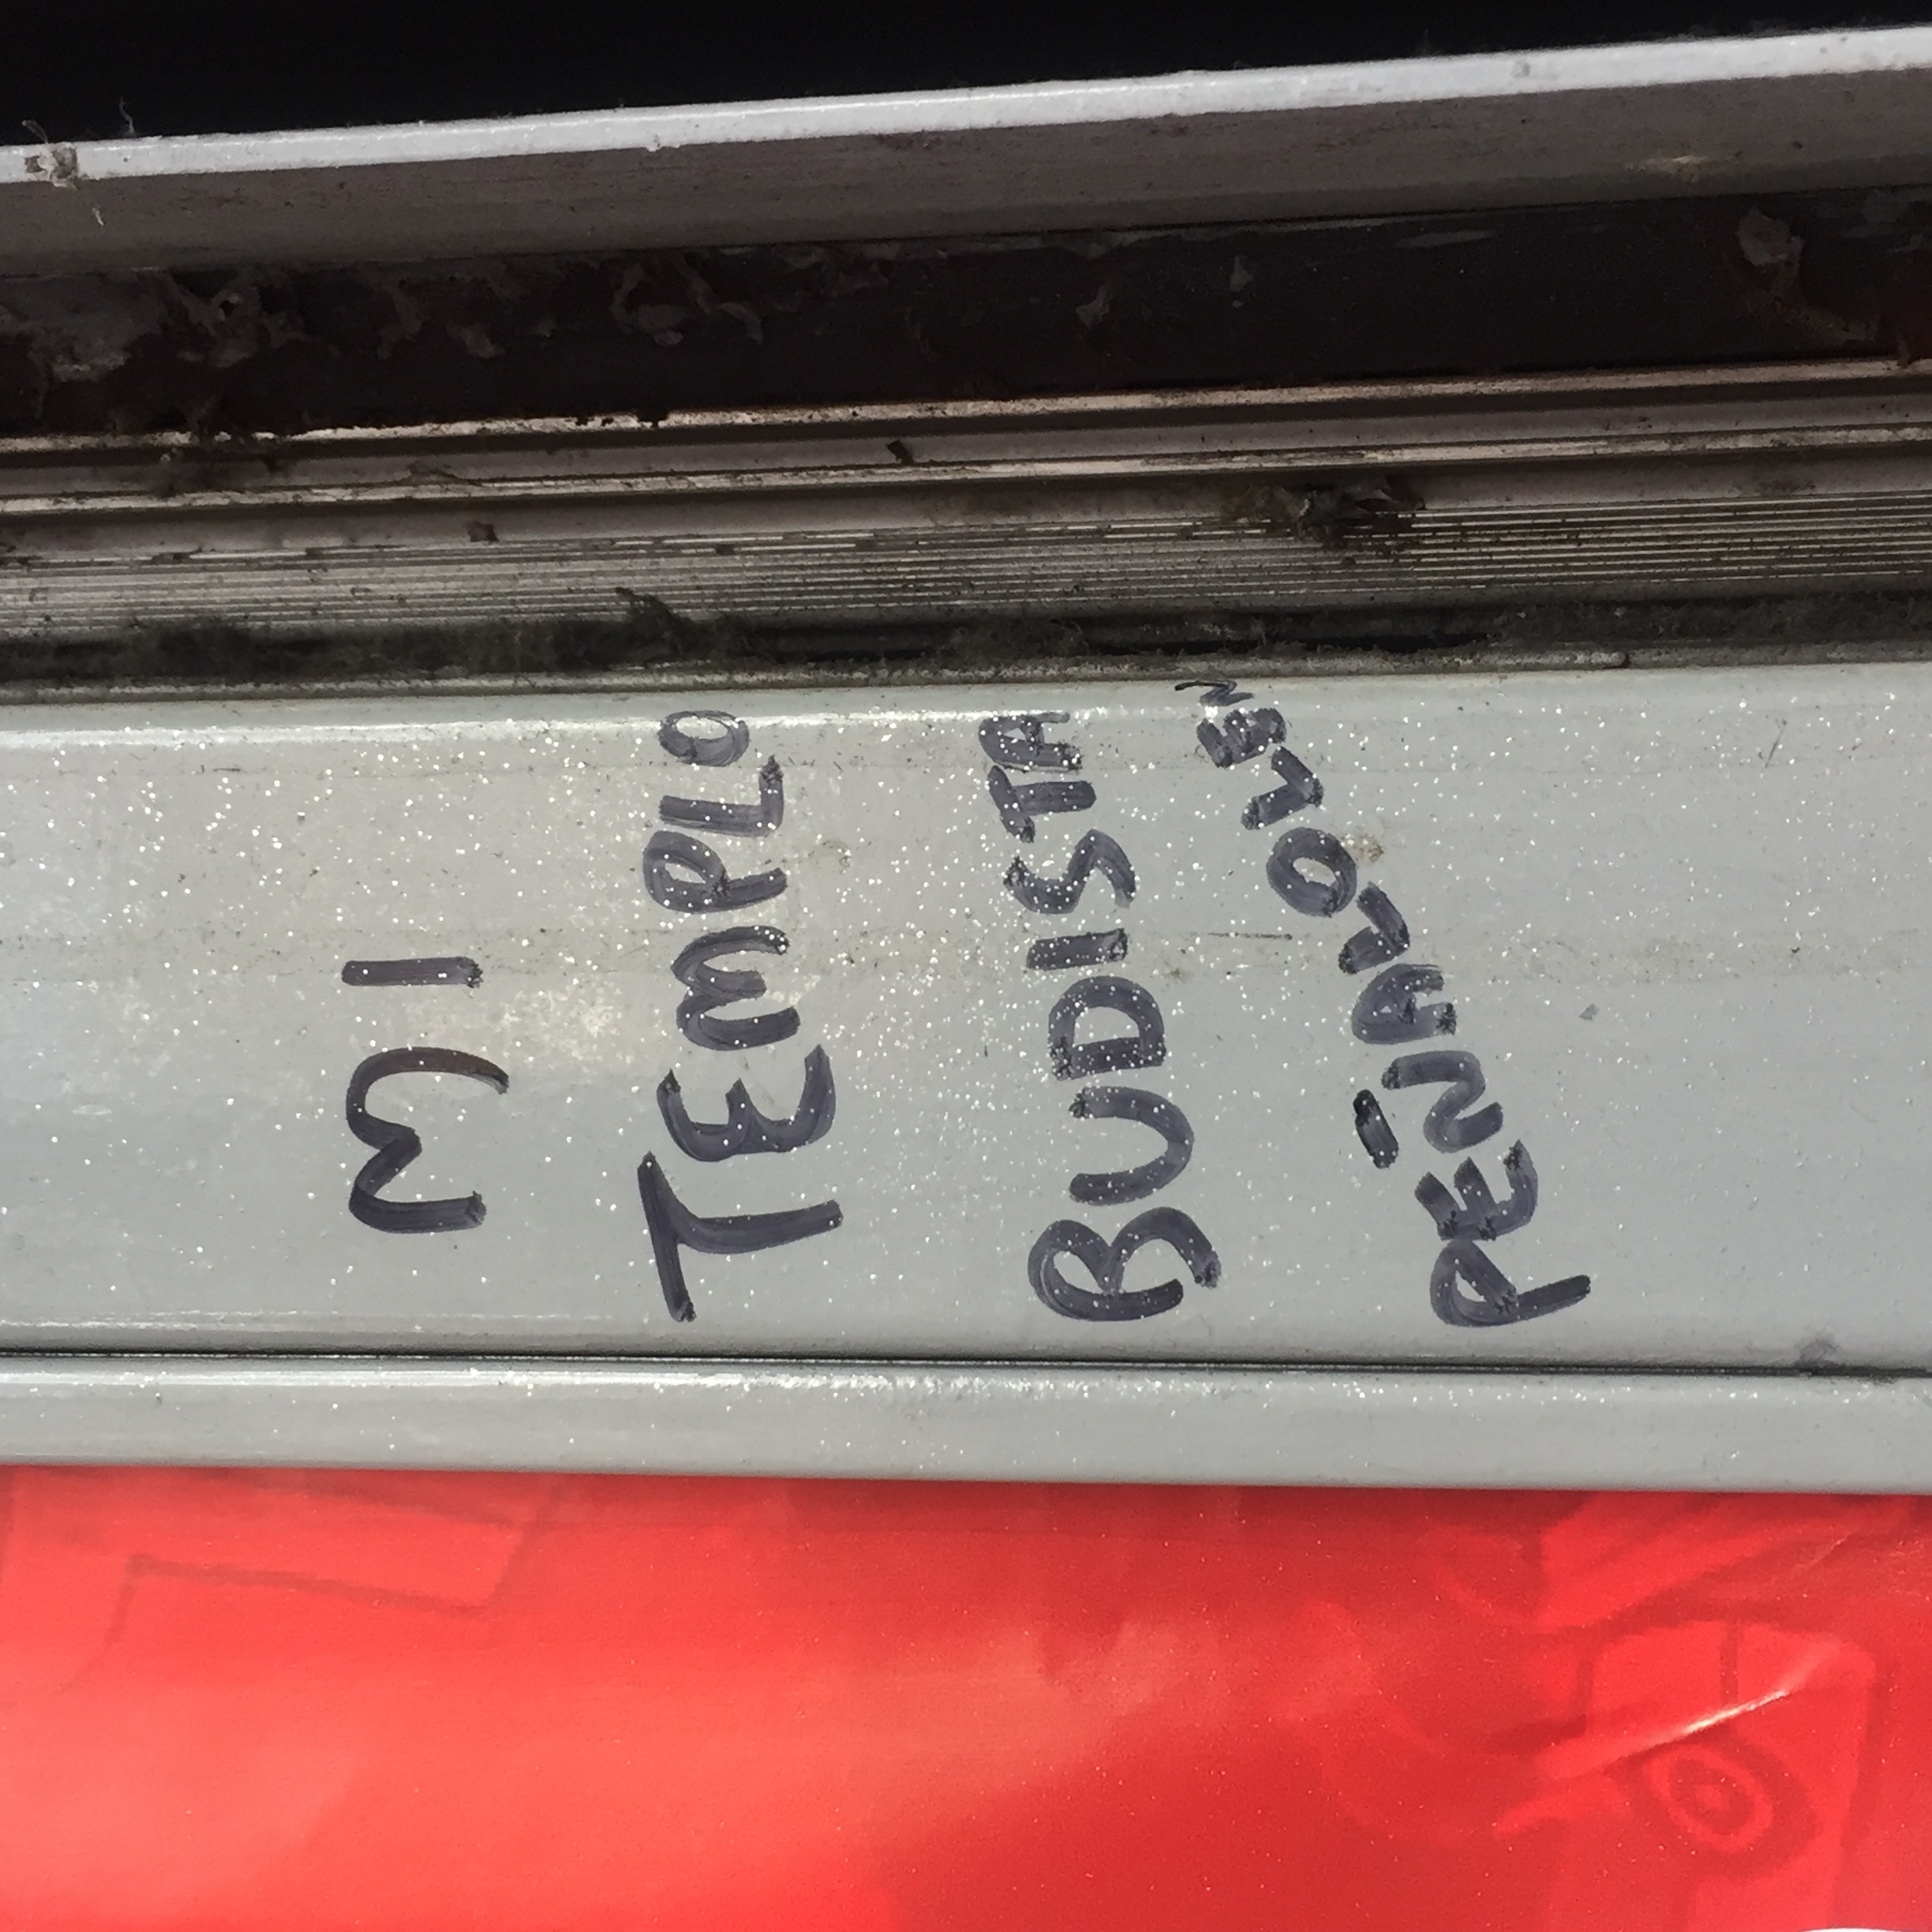 MI
TEMPLO
BUDISTA
PEÑALOLEN